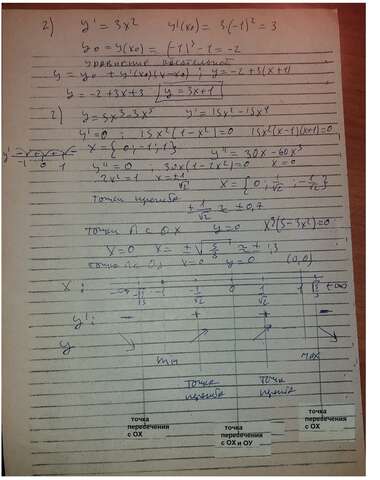 2) y' = 3x² y'(x₀) = 3·(-1)² = 3
y₀ = y(x₀) = (-1)³ - 1 = -2
уравнение касательной
y = y₀ + y'(x₀)(x-x₀) ; y = -2 + 3(x+1)
y = -2 + 3x + 3 y = 3x+1
2) y = 5x³ - 3x⁵ y' = 15x² - 15x⁴
y' = 0 ; 15x²(1-x²) = 0 15x²(x-1)(x+1) = 0
x = {0; -1; 1} y'' = 30x - 60x³
-1 0 1
y'' = 0 ; 30x(1-2x²) = 0 x = 0
2x² = 1 x = ±1/√2 x = {0; 1/√2; -1/√2}
точки перегиба
±1/√2 ≈ ±0,7
точки П с OX y = 0 x³(5-3x²) = 0
x = 0 x = ±√5/3 ≈ ±1,3
точка П с Oy x = 0 y = 0 (0,0)
x: -∞ -√5/3 -1 -1/√2 0 1/√2 1 √5/3 +∞
y': - + + -
y
min max
точка перегиба точка перегиба
точка пересечения с ОХ точка пересечения с ОХ и ОУ точка пересечения с ОХ